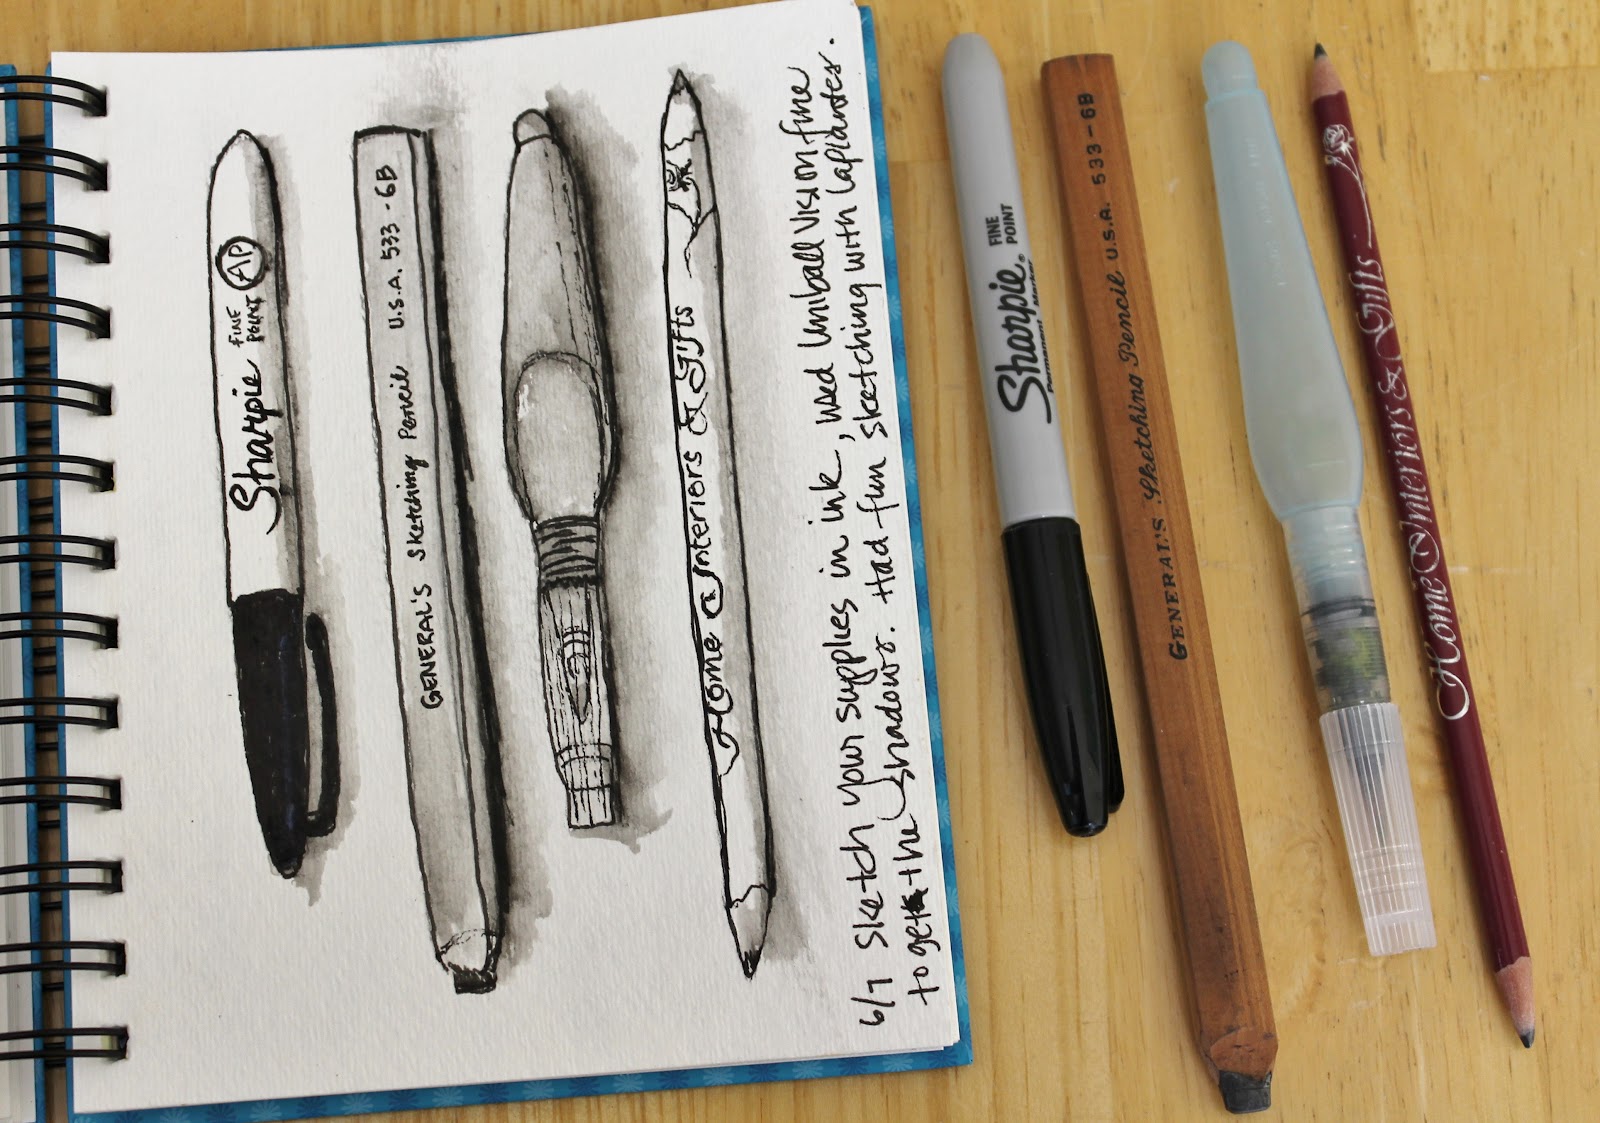 Sharpie
FINE
POINT
AP
GENERAL'S Sketching Pencil U.S.A. 533-6B
Home Interiors & Gifts
6/7 Sketch your supplies in ink, used Uniball Vision fine
to get the shadows. Had fun sketching with LaPlantes.
Sharpie®
FINE
POINT
Permanent Marker
GENERAL'S Sketching Pencil U.S.A. 533-6B
Home Interiors & Gifts